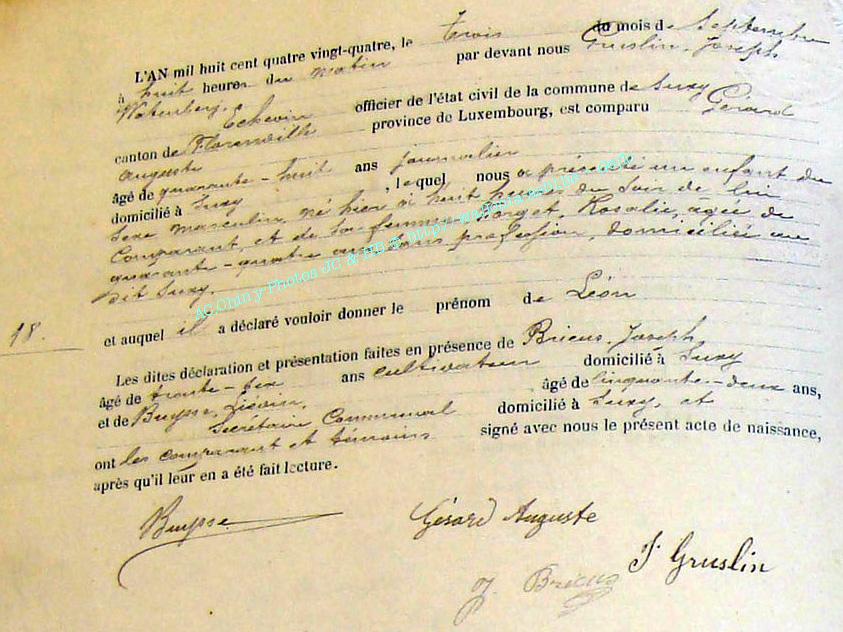 L'AN mil huit cent quatre vingt-quatre, le trois du mois de Septembre
à huit heures du matin par devant nous Gruslin, Joseph
Echevin officier de l'état civil de la commune de Suxy
canton de Florenville province de Luxembourg, est comparu Gérard
Auguste
âgé de quarante-huit ans journalier
domicilié à Suxy, lequel nous a présenté un enfant du
sexe masculin, né hier à huit heures du soir de lui
comparant, et de sa femme Forget, Rosalie, âgée de
quarante-quatre ans, sans profession, domiciliée au
dit Suxy.
18.
et auquel il a déclaré vouloir donner le prénom de Léon
Les dites déclaration et présentation faites en présence de Bricus, Joseph,
âgé de trente-six ans cultivateur domicilié à Suxy
et de Buysse, Liévin, âgé de cinquante-deux ans,
Secrétaire Communal domicilié à Suxy, et
ont les comparant et témoins signé avec nous le présent acte de naissance,
après qu'il leur en a été fait lecture.
Buysse
Gérard Auguste
J. Gruslin
J. Bricus
AC Chiny Photos JC &